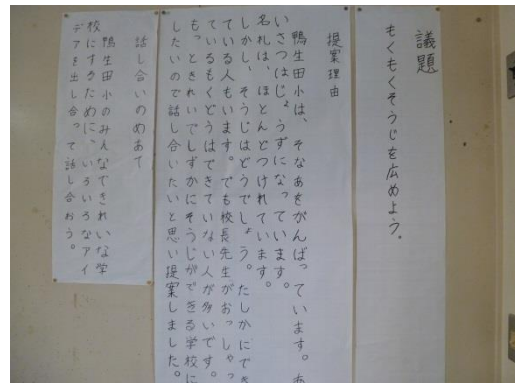 議題
もくもくそうじを広めよう。
提案理由
鴨生田小は、そなあをがんばっています。あ
いさつはじょうずになっています。
名札は、ほとんどつけれています。
しかし、そうじはどうでしょう。たしかにでき
ている人もいます。でも校長先生がおっしゃっ
ているもくどうはできていない人が多いです。
もっときれいでしずかにそうじができる学校に
したいので話し合いたいと思い提案しました。
話し合いのめあて
鴨生田小のみんなできれいな学
校にするために、いろいろなアイ
デアを出し合って話し合おう。